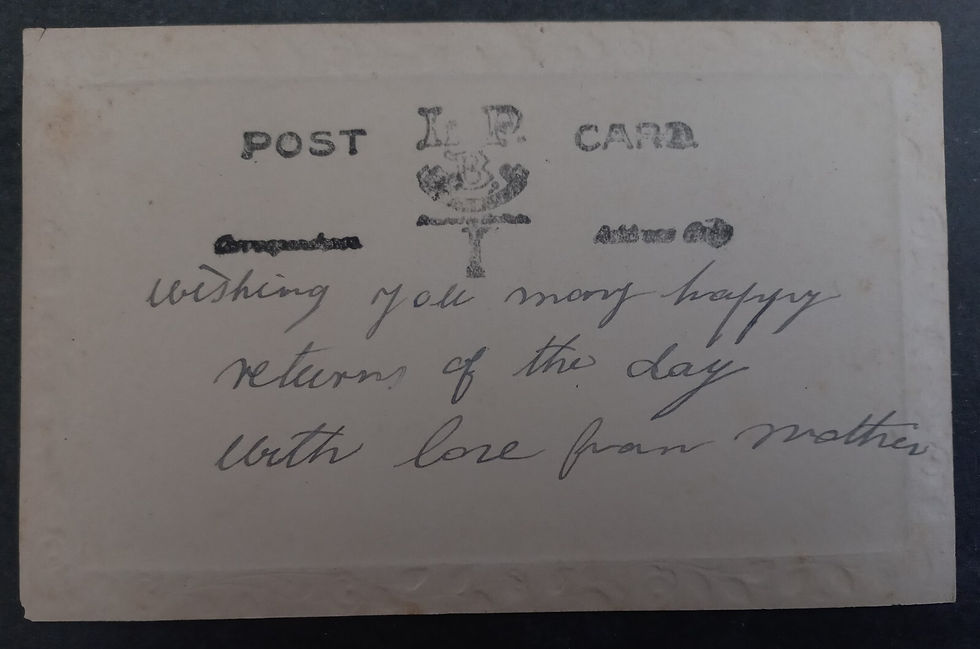 POST L. P. CARD
B.
Correspondence Address Only
wishing you many happy
returns of the day
with love from mother